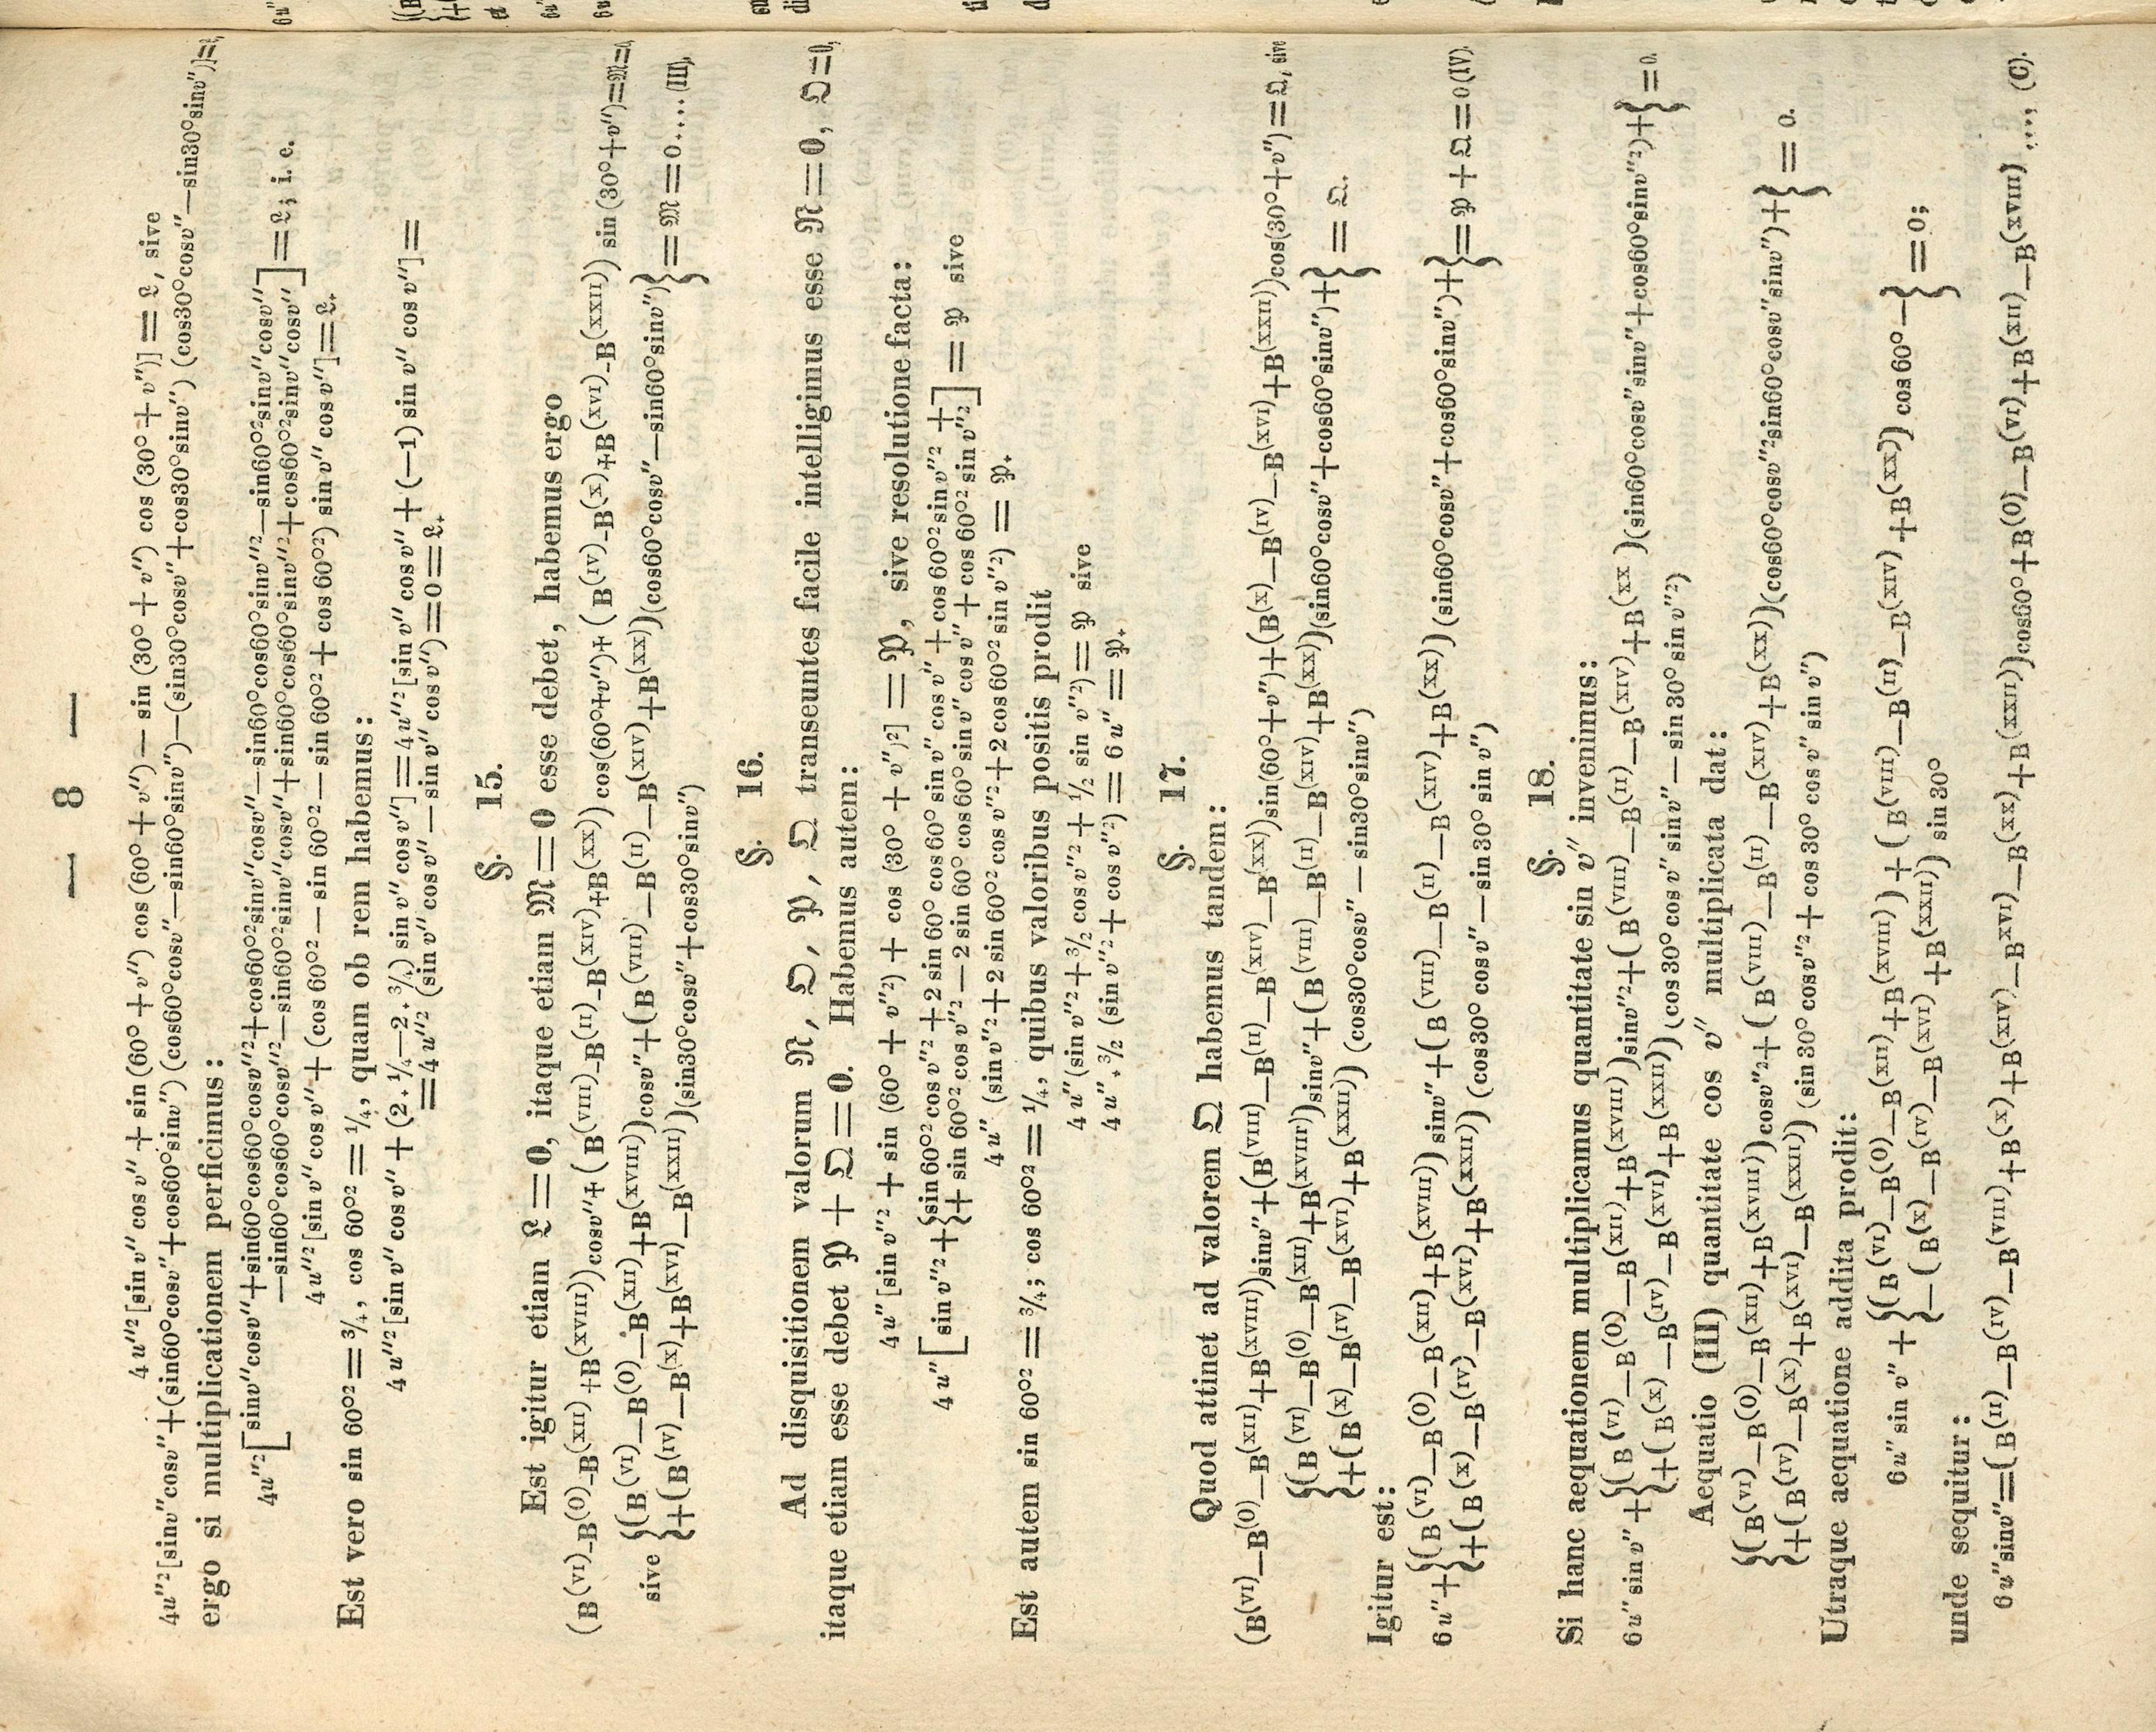 — 8 —
4u″²[sin v″ cos v″ + sin (60° + v″) cos (60° + v″) — sin (30° + v″) cos (30° + v″)] = 𝔏, sive
4u″²[sinv″cosv″+(sin60°cosv″+cos60°sinv″)(cos60°cosv″—sin60°sinv″)—(sin30°cosv″+cos30°sinv″)(cos30°cosv″—sin30°sinv″)]=𝔏,
ergo si multiplicationem perficimus:
4u″²[sinv″cosv″+sin60°cos60°cosv″²+cos60°²sinv″cosv″—sin60°cos60°sinv″²—sin60°²sinv″cosv″
—sin60°cos60°cosv″²—sin60°²sinv″cosv″+sin60°cos60°sinv″²+cos60°²sinv″cosv″]=𝔏; i. e.
4u″²[sin v″ cos v″ + (cos 60°² — sin 60°² — sin 60°² + cos 60°²) sin v″ cos v″]=𝔏.
Est vero sin 60°² = ¾, cos 60°² = ¼, quam ob rem habemus:
4u″²[sin v″ cos v″ + (2.¼—2.¾) sin v″ cos v″] = 4u″²[sin v″ cos v″ + (—1) sin v″ cos v″]=
=4u″²(sin v″ cos v″ — sin v″ cos v″)=0=𝔏.
§. 15.
Est igitur etiam 𝔏=0, itaque etiam 𝔐=0 esse debet, habemus ergo
(B(VI)—B(0)—B(XII)+B(XVIII))cosv″+(B(VIII)—B(II)—B(XIV)+B(XX))cos(60°+v″)+(B(IV)—B(X)+B(XVI)—B(XXII)) sin (30°+v″)=𝔐=0,
sive {(B(VI)—B(0)—B(XII)+B(XVIII))cosv″+(B(VIII)—B(II)—B(XIV)+B(XX))(cos60°cosv″—sin60°sinv″)}=𝔐=0....(III).
{+(B(IV)—B(X)+B(XVI)—B(XXII))(sin30°cosv″+cos30°sinv″)
§. 16.
Ad disquisitionem valorum 𝔑, 𝔒, 𝔓, 𝔔 transeuntes facile intelligimus esse 𝔑=0, 𝔒=0,
itaque etiam esse debet 𝔓 + 𝔔=0. Habemus autem:
4u″[sin v″² + sin (60° + v″²) + cos (30° + v″)²] = 𝔓, sive resolutione facta:
4u″[sin v″²+{sin60°²cosv″²+2 sin 60° cos 60° sin v″ cos v″ + cos 60°² sin v″² +
{+ sin 60°² cos v″² — 2 sin 60° cos 60° sin v″ cos v″ + cos 60°² sin v″²] = 𝔓 sive
4u″ (sin v″²+2 sin 60°² cos v″²+2 cos 60°² sin v″²) = 𝔓.
Est autem sin 60°² = ¾; cos 60°² = ¼, quibus valoribus positis prodit
4u″(sin v″²+³/₂ cos v″² + ½ sin v″²) = 𝔓 sive
4u″.³/₂ (sin v″² + cos v″²) = 6u″ = 𝔓.
§. 17.
Quod attinet ad valorem 𝔔 habemus tandem:
(B(VI)—B(0)—B(XII)+B(XVIII))sinv″+(B(VIII)—B(II)—B(XIV)—B(XX))sin(60°+v″)+(B(X)—B(IV)—B(XVI)+B(XXII))cos(30°+v″)=𝔔, sive
{(B(VI)—B(0)—B(XII)+B(XVIII))sinv″+(B(VIII)—B(II)—B(XIV)+B(XX))(sin60°cosv″+cos60°sinv″)+} = 𝔔.
{+(B(X)—B(IV)—B(XVI)+B(XXII)) (cos30°cosv″ — sin30°sinv″)
Igitur est:
6u″+{(B(VI)—B(0)—B(XII)+B(XVIII)) sinv″+(B(VIII)—B(II)—B(XIV)+B(XX)) (sin60°cosv″+cos60°sinv″)+}=𝔓+𝔔=0(IV).
{+(B(X)—B(IV)—B(XVI)+B(XXII)) (cos30° cos v″—sin 30° sin v″)
§. 18.
Si hanc aequationem multiplicamus quantitate sin v″ invenimus:
6u″sin v″+{(B(VI)—B(0)—B(XII)+B(XVIII))sinv″²+(B(VIII)—B(II)—B(XIV)+B(XX)(sin60°cosv″sinv″+cos60°sinv″²)+}=0.
{+(B(X)—B(IV)—B(XVI)+B(XXII))(cos 30° cos v″ sin v″ — sin 30° sin v″²)
Aequatio (III) quantitate cos v″ multiplicata dat:
{(B(VI)—B(0)—B(XII)+B(XVIII))cosv″²+(B(VIII)—B(II)—B(XIV)+B(XX))(cos60°cosv″²sin60°cosv″sinv″)+} = 0.
{+(B(IV)—B(X)+B(XVI)—B(XXII))(sin 30° cosv″²+ cos 30° cos v″ sin v″)
Utraque aequatione addita prodit:
6u″ sin v″ + {(B(VI)—B(0)—B(XII)+B(XVIII)) + (B(VIII)—B(II)—B(XIV)+B(XX)) cos 60° —} = 0;
{—(B(X)—B(IV)—B(XVI)+B(XXII)) sin 30°
unde sequitur:
6u″sinv″=(B(II)—B(IV)—B(VIII)+B(X)+B(XIV)—BXVI)—B(XX)+B(XXII))cos60°+B(0)—B(VI)+B(XII)—B(XVIII) ...., (C).